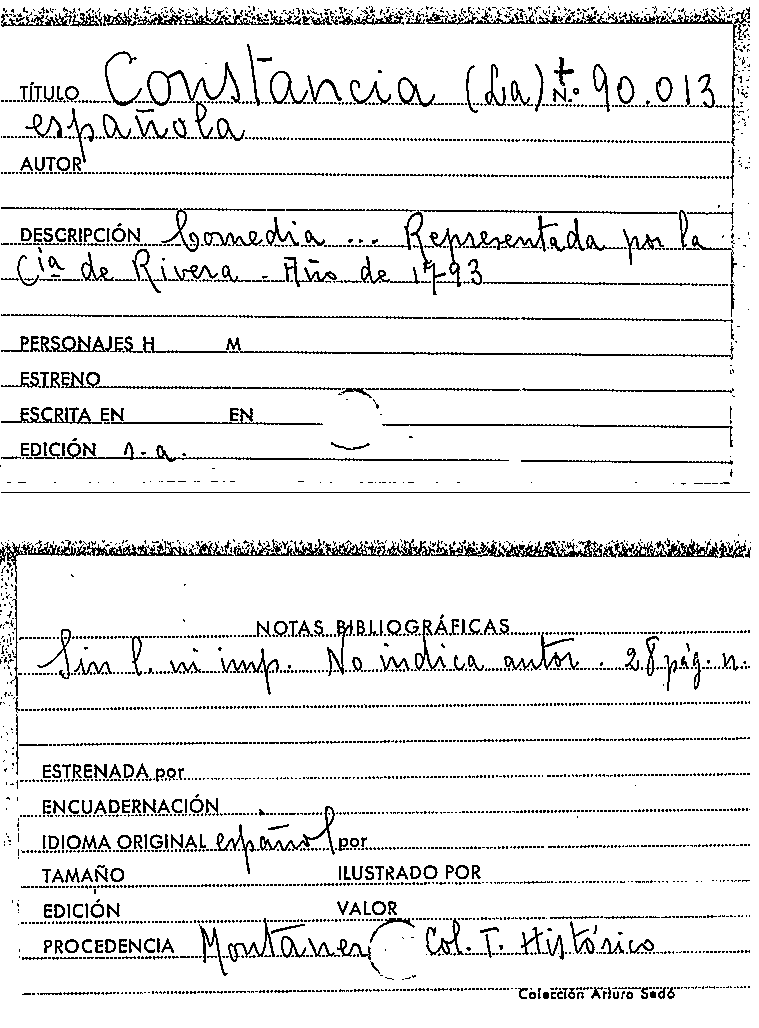 TÍTULO Constancia (La) Nº 90.013
española
AUTOR
DESCRIPCIÓN Comedia ... Representada por la
Cía de Rivera - Año de 1793
PERSONAJES H M
ESTRENO
ESCRITA EN EN
EDICIÓN 1-a.
NOTAS BIBLIOGRÁFICAS
Sin l. ni imp. No indica autor. 28 pág. n.
ESTRENADA por
ENCUADERNACIÓN
IDIOMA ORIGINAL español por
TAMAÑO ILUSTRADO POR
EDICIÓN VALOR
PROCEDENCIA Montaner Col. T. Histórico
Colección Arturo Sedó